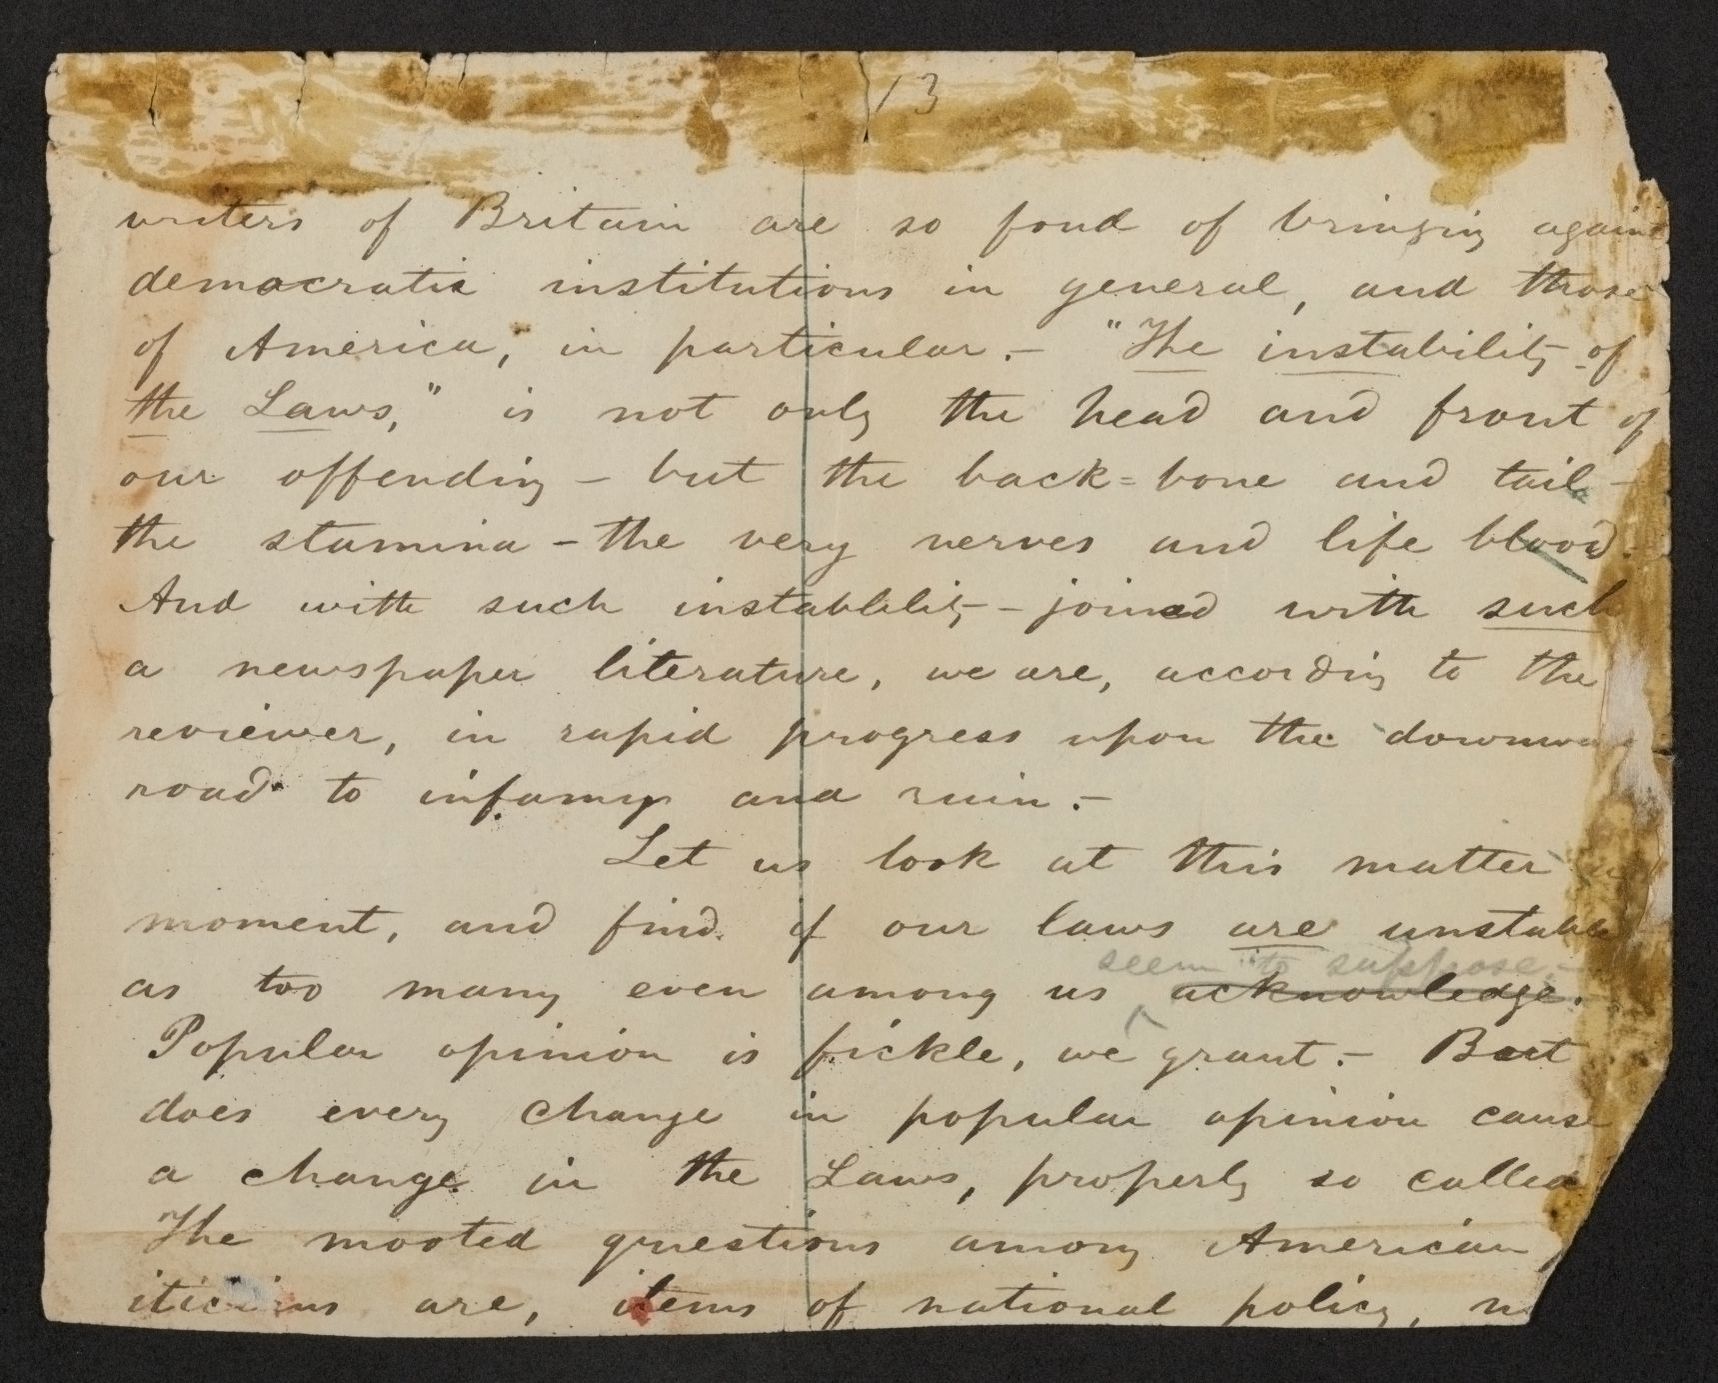 13
writers of Britain are so fond of bringing against
democratic institutions in general, and those
of America, in particular.— "The instability of
the Laws," is not only the head and front of
our offending — but the back=bone and tail —
the stamina — the very nerves and life blood.
And with such instablility — joined with such
a newspaper literature, we are, according to the
reviewer, in rapid progress upon the downwa
road to infamy and ruin.—
Let us look at this matter a
moment, and find if our laws are unstable
seem to suppose.—
as too many even among us acknowledge.
Popular opinion is fickle, we grant.— But
does every change in popular opinion cause
a change in the Laws, properly so called
The mooted questions among American
iticians are, items of national policy,